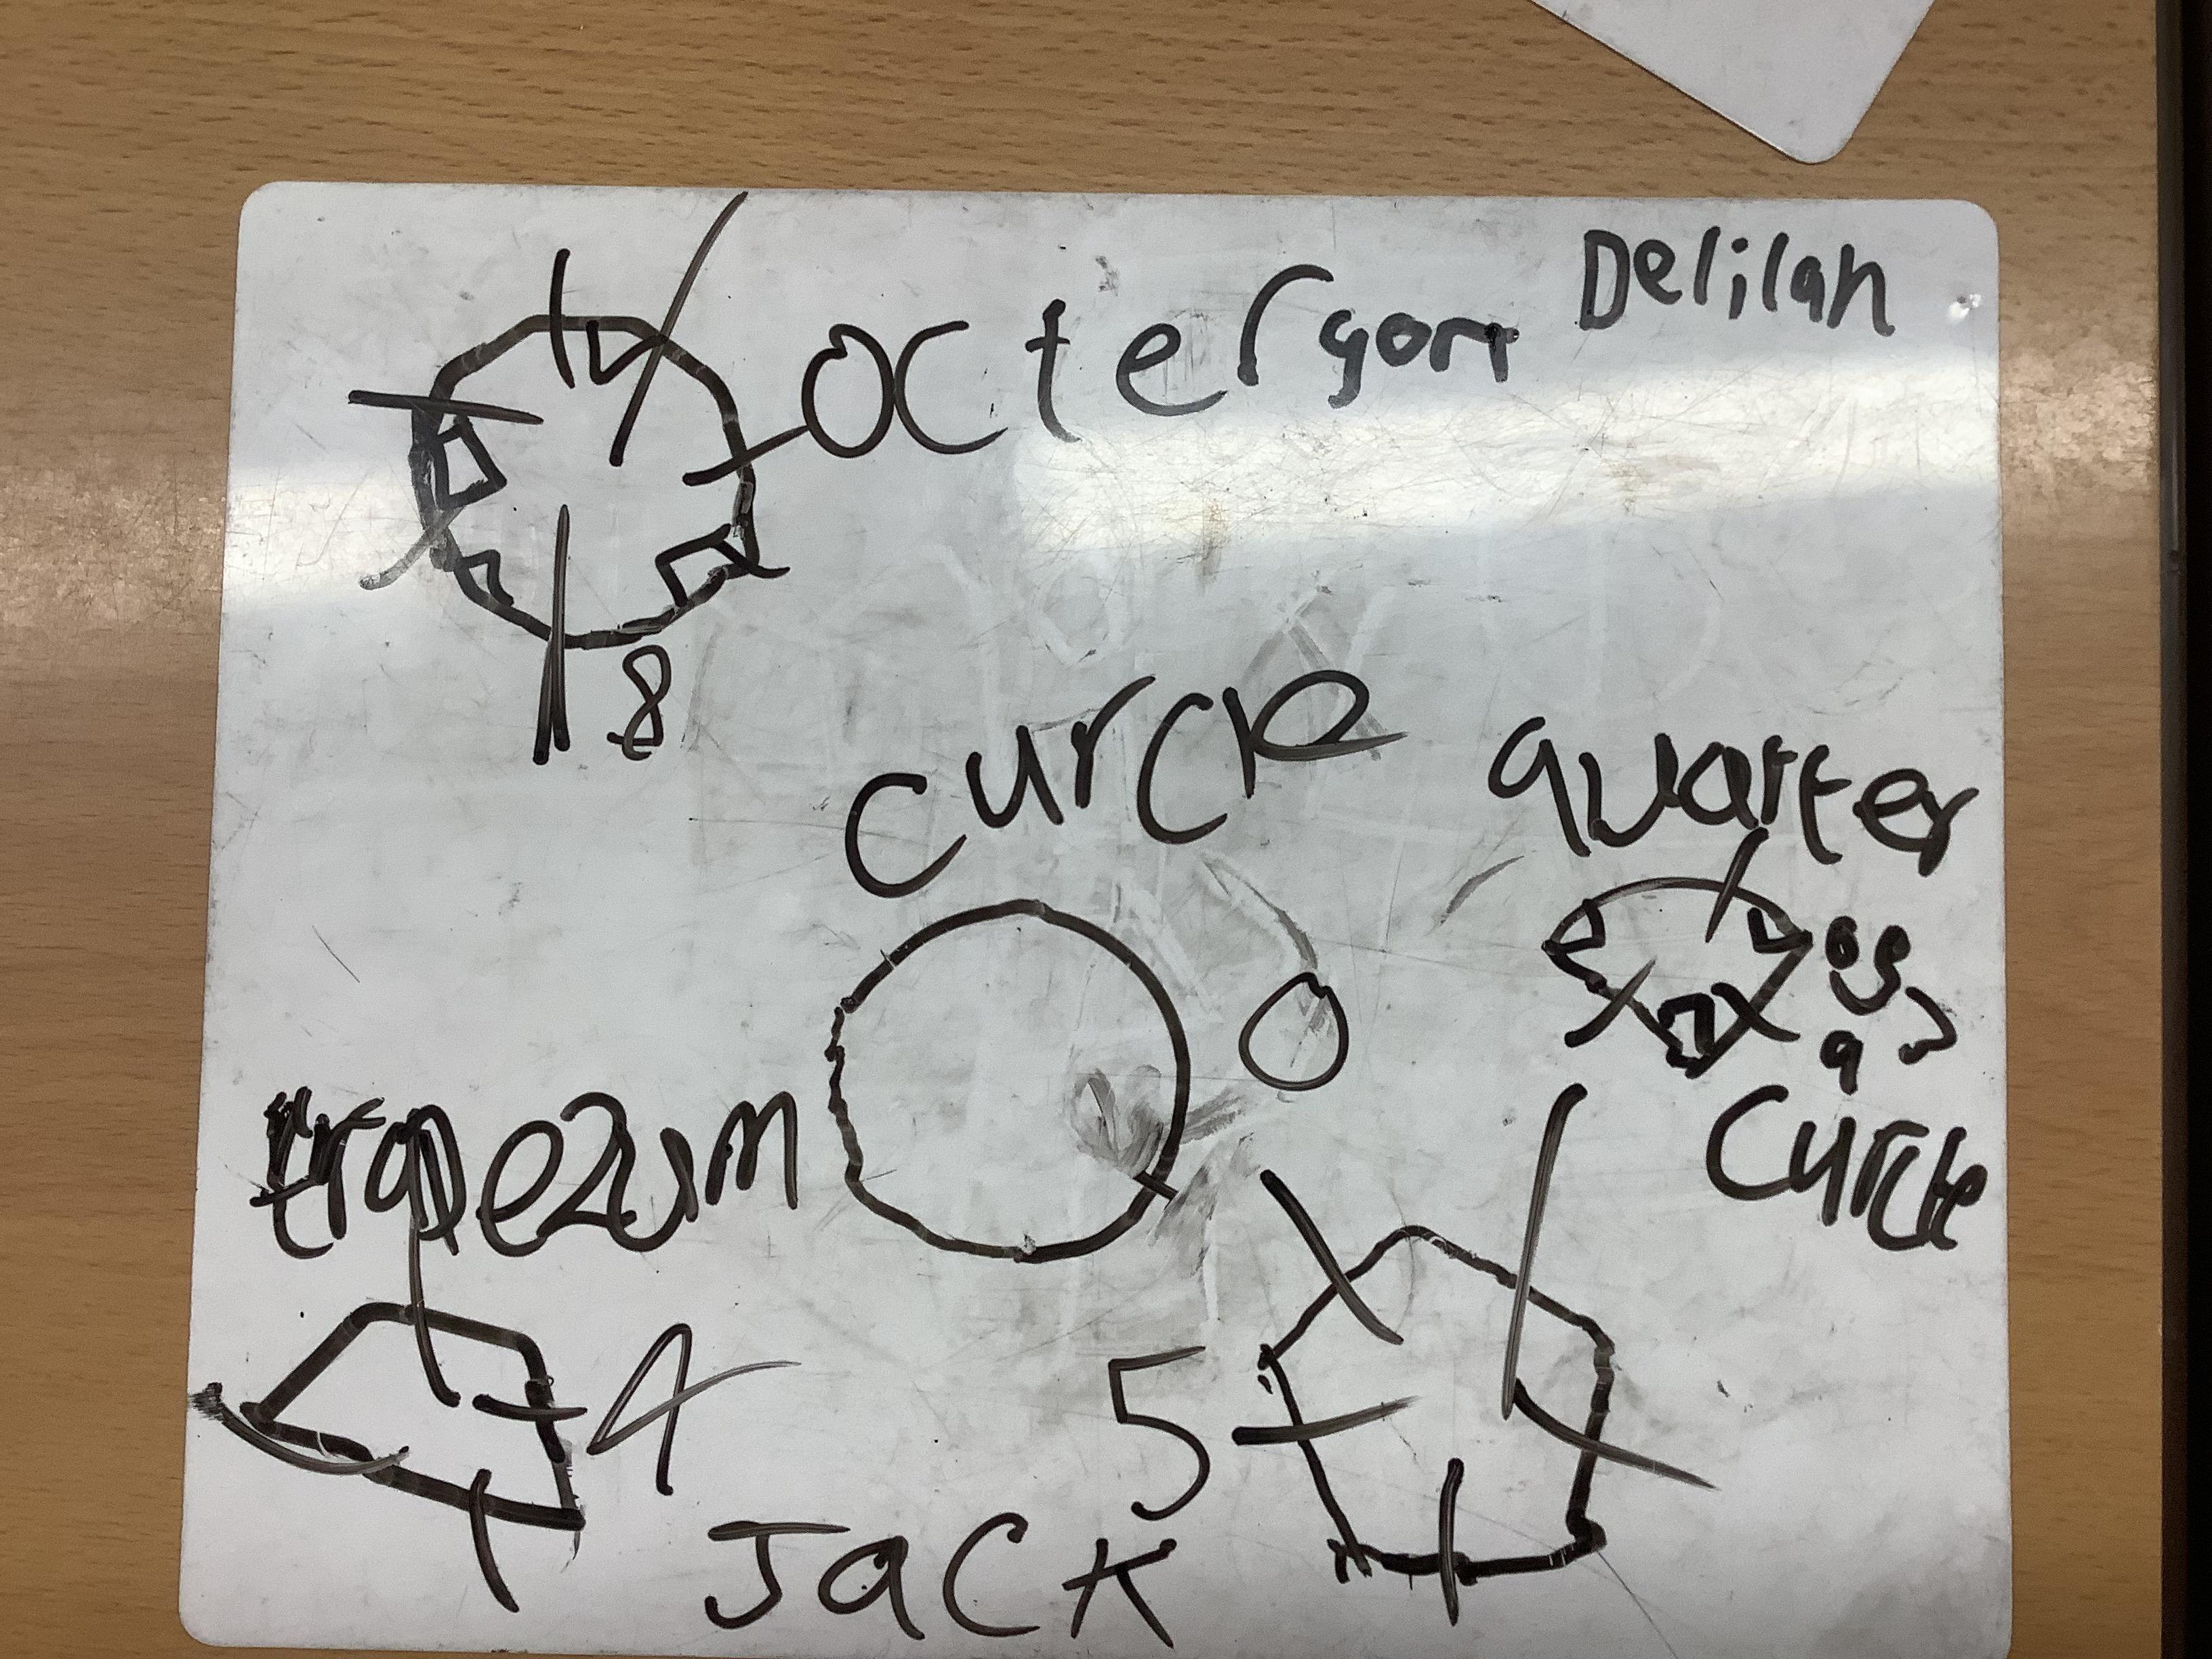 Delilah
octergon
8
curcle
quarter
of
a
curcle
0
trapezum
4
5
Jack